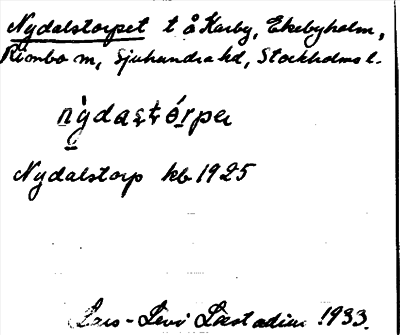 Nydalstorpet t å Karby, Ekebyholm,
Rimbo sn, Sjuhundra hd, Stockholms l.
nỳdaștórpeɩ
Nydalstorp kb 1925
Lars-Levi Læstadius 1933.